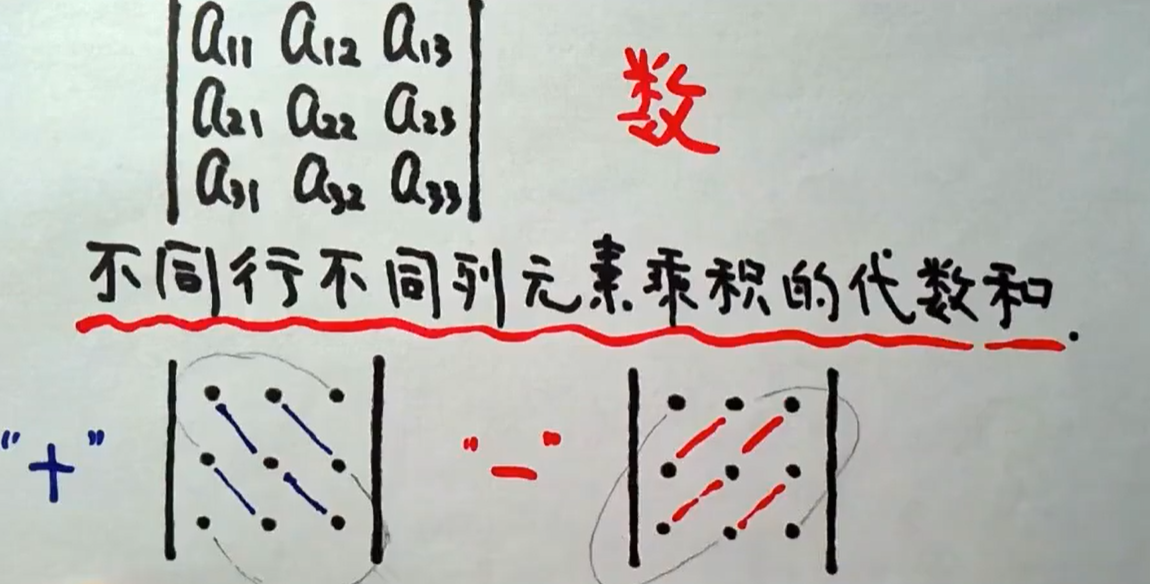 a11 a12 a13
a21 a22 a23
a31 a32 a33
数
不同行不同列元素乘积的代数和.
"+" "-"